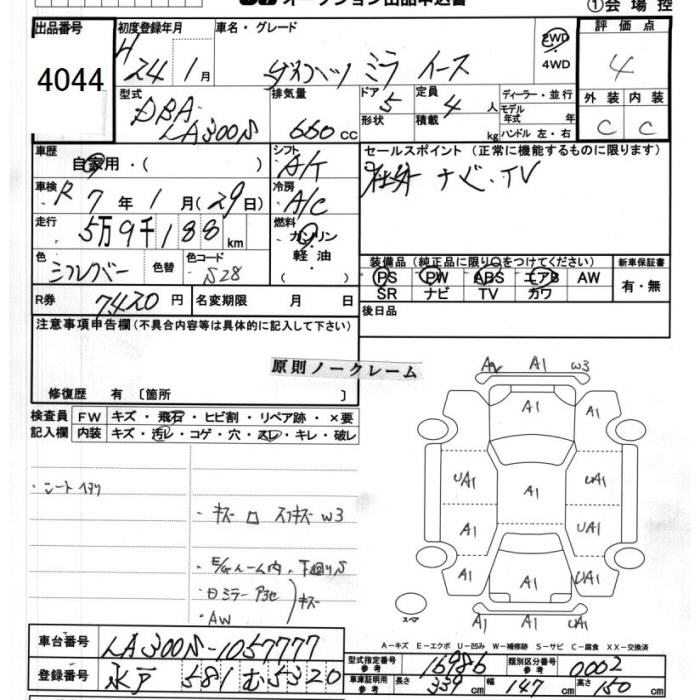 オークション出品申込書 ①会場控
出品番号 初度登録年月 車名・グレード 評価点
4044 H 24年1月 ダイハツ ミラ イース 2WD 4WD 4
型式 DBA- LA300S 排気量 660cc
ドア 5 定員 4人 ディーラー・並行
形状 積載 kg モデル年式 年式 ハンドル 左・右
外装 内装
C C
車歴 自家用・( )
シフト A/T
セールスポイント(正常に機能するものに限ります)
社外ナビ・TV
車検 R 7年1月(29日)
冷房 A/C
走行 5万9千188km
燃料 ガソリン 軽油 ( )
色 シルバー 色替 色コード S28
装備品(純正品に限り○をつけてください) 新車保証書
PS PW ABS エアB AW 有・無
SR ナビ TV カワ
R券 7420円 名変期限 月 日
後日品
注意事項申告欄(不具合内容等は具体的に記入して下さい)
原則ノークレーム
修復歴 有〔箇所 〕
検査員 FW キズ・飛石・ヒビ割・リペア跡・×要
記入欄 内装 キズ・汚レ・コゲ・穴・スレ・キレ・破レ
・シートヘタリ
・キズ ロ スリキズ W3
・E/Gルーム内、下廻りS
・Dミラー
・AW キズ
A1 W3
A1
A1
UA1 UA1
A1
A1 A1
A1 UA1
A1
A1 A1 A1
スペア
A-キズ E-エクボ U-凹み W-補修跡 S-サビ C-腐食 XX-交換済
車台番号 LA300S-1057777
登録番号 水戸 581 む 5320
型式指定番号 参考 16986 類別区分番号 参考 0002
車庫証明用 参考 長さ 339cm 幅 147cm 高さ 150cm